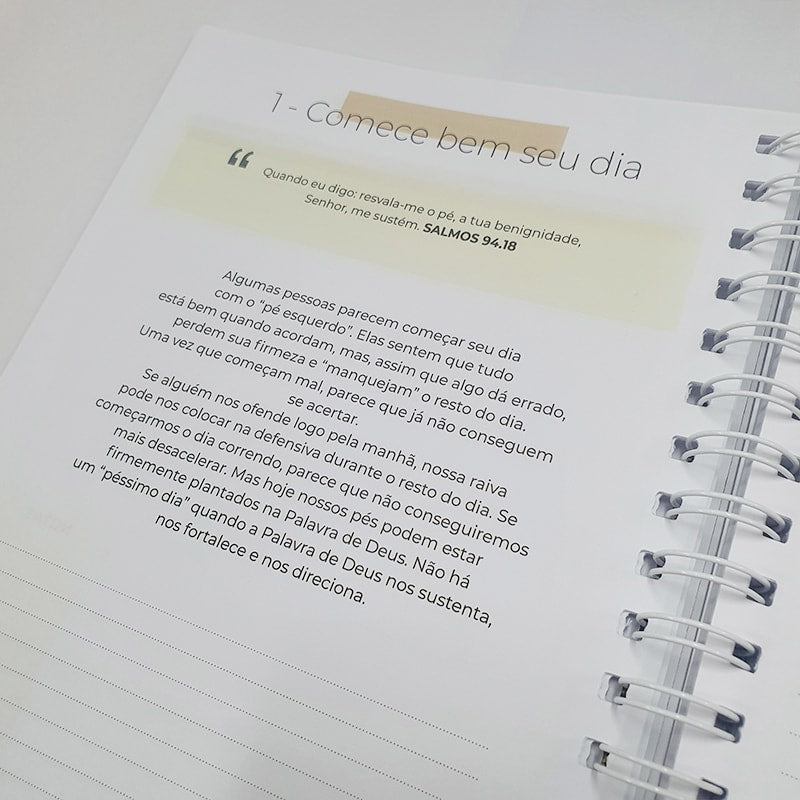 1 - Comece bem seu dia
“
Quando eu digo: resvala-me o pé, a tua benignidade,
Senhor, me sustém. SALMOS 94.18
Algumas pessoas parecem começar seu dia
com o “pé esquerdo”. Elas sentem que tudo
está bem quando acordam, mas, assim que algo dá errado,
perdem sua firmeza e “manquejam” o resto do dia.
Uma vez que começam mal, parece que já não conseguem
se acertar.
Se alguém nos ofende logo pela manhã, nossa raiva
pode nos colocar na defensiva durante o resto do dia. Se
começarmos o dia correndo, parece que não conseguiremos
mais desacelerar. Mas hoje nossos pés podem estar
firmemente plantados na Palavra de Deus. Não há
um “péssimo dia” quando a Palavra de Deus nos sustenta,
nos fortalece e nos direciona.